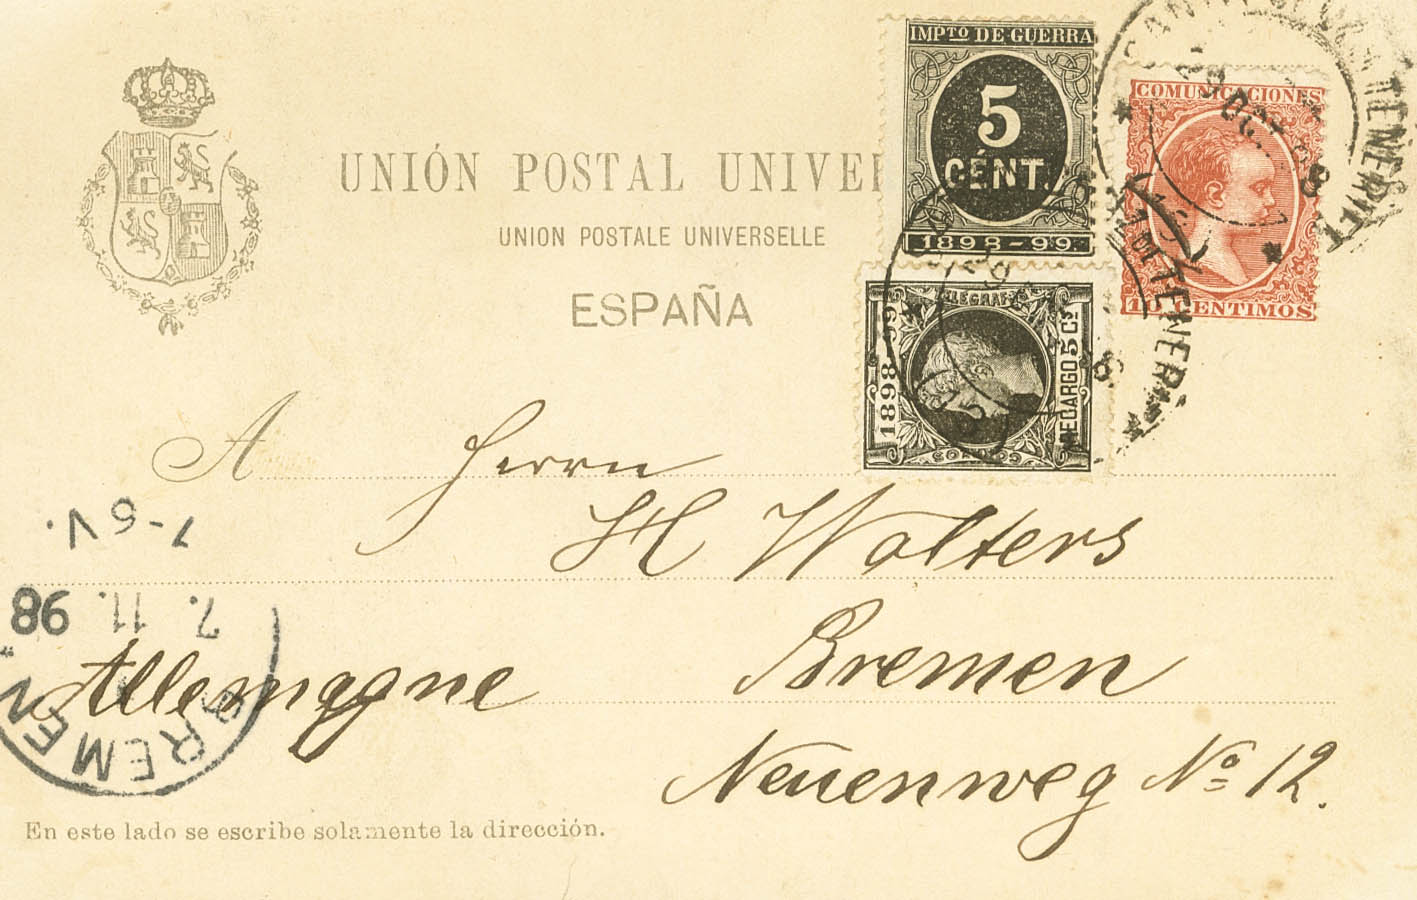 UNIÓN POSTAL UNIVE
UNION POSTALE UNIVERSELLE
ESPAÑA
IMPTO DE GUERRA
5
CÉNT.
1898-99.
COMUNICACIONES
CENTIMOS
1898-99
RECARGO 5 Cs
CORREOS
A Herrn
H Wolters
Bremen
Allemagne
Neuenweg No 12.
7-6 V.
7. 11. 98
BREMEN
En este lado se escribe solamente la dirección.